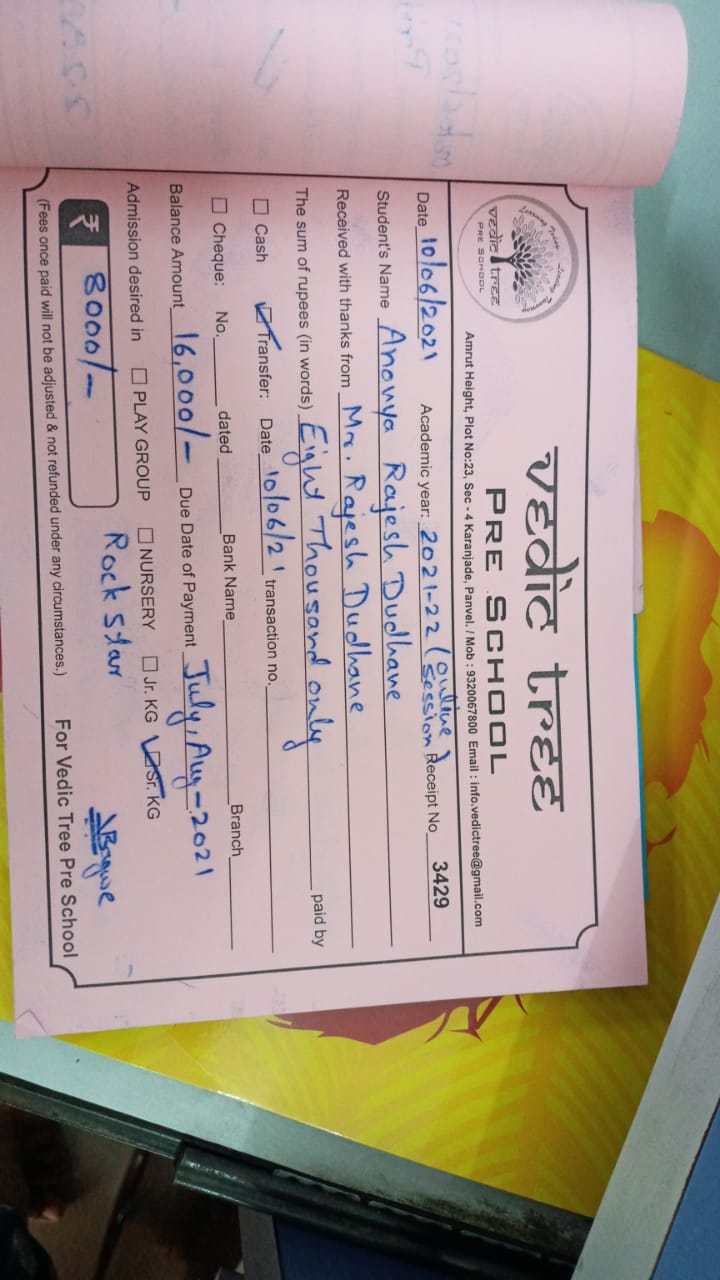 Vedic tree
PRE SCHOOL
vedic tree
PRE SCHOOL
Amrut Height, Plot No:23, Sec - 4 Karanjade, Panvel. / Mob : 9320067800 Email : info.vedictree@gmail.com
Date 10/06/2021 Academic year: 2021-22 (online session) Receipt No 3429
Student's Name Ananya Rajesh Dudhane
Received with thanks from Mr. Rajesh Dudhane
The sum of rupees (in words) Eight Thousand only paid by
☐ Cash ☑ Transfer: Date 10/06/21 transaction no.
☐ Cheque: No. dated Bank Name Branch
Balance Amount 16,000/- Due Date of Payment July, Aug-2021
Admission desired in ☐ PLAY GROUP ☐ NURSERY ☐ Jr. KG ☑ Sr. KG
₹ 8000/- Rock Star
(Fees once paid will not be adjusted & not refunded under any circumstances.) For Vedic Tree Pre School